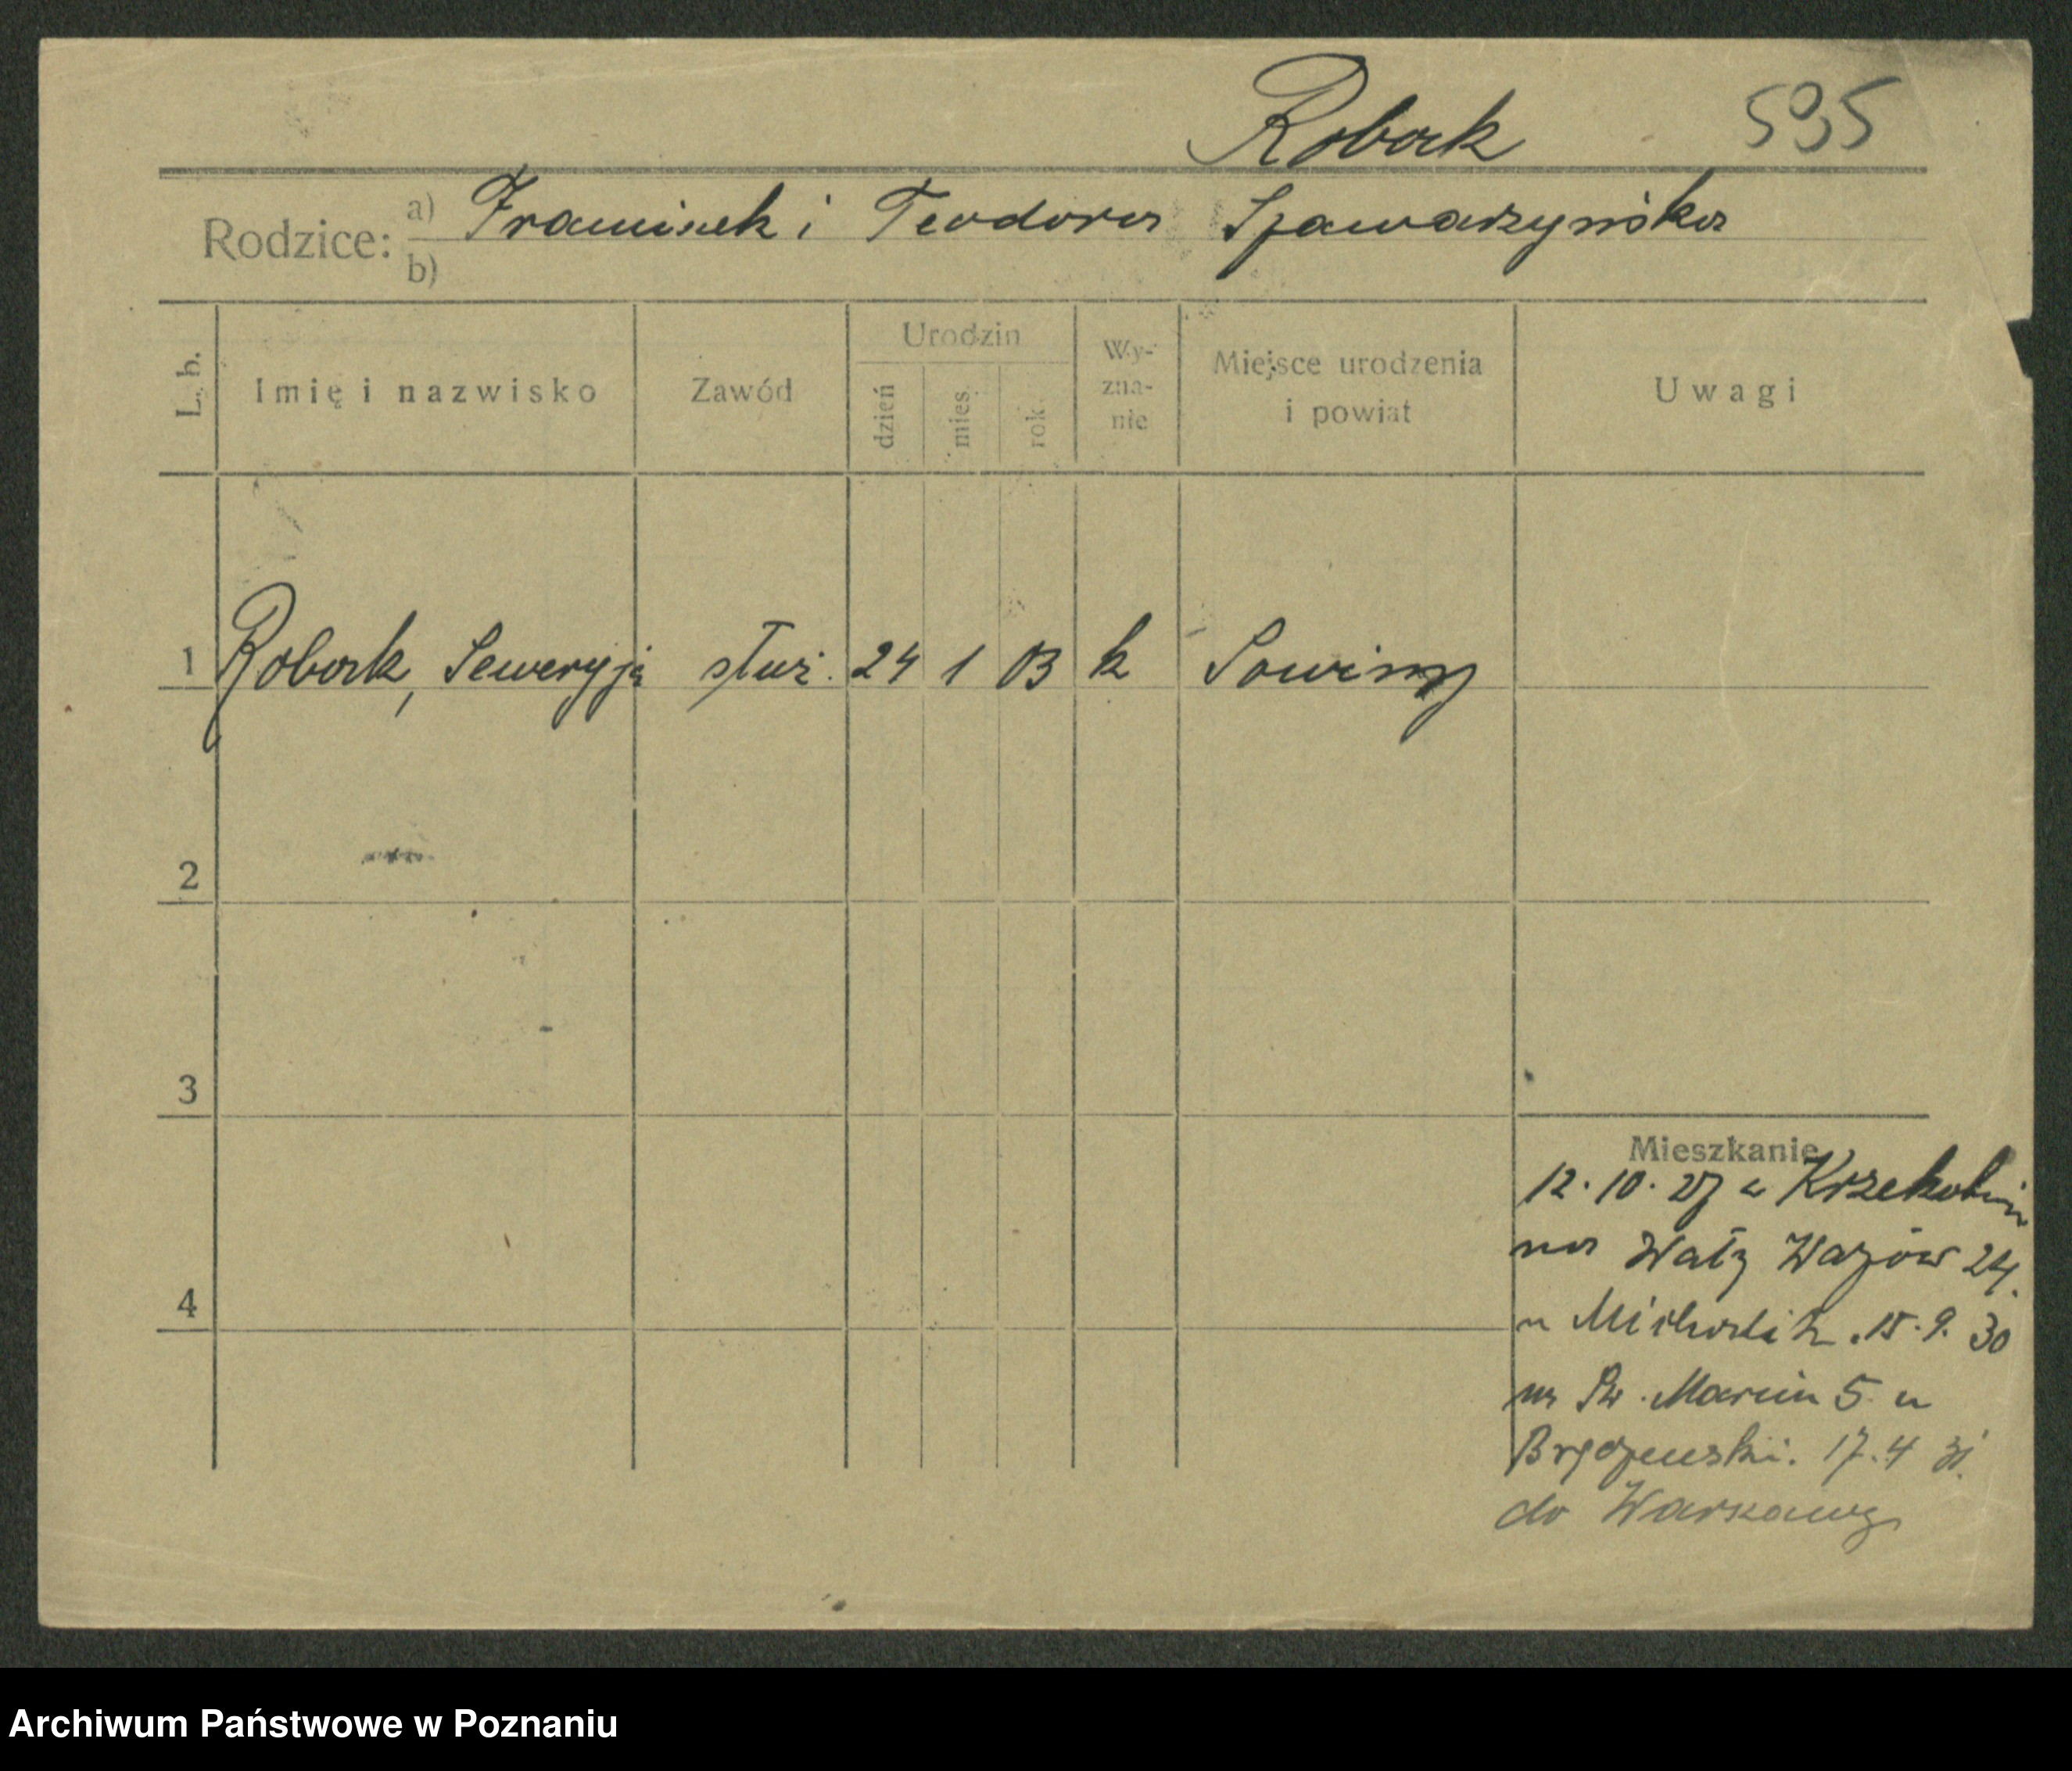 Roback 595
Rodzice: a) Franciszek i Teodora Spawarzyńska
b)
L. b. Imię i nazwisko Zawód Urodzin dzień mies. rok Wyznanie Miejsce urodzenia i powiat Uwagi
1 Roback, Seweryja służ. 24 1 03 k Sowiny
2
3
Mieszkanie
12.10.27 z Krzekotin
4
na Wały Wazów 24.
u 15.9.30
na Św. Marcin 5 u
17.4 31.
do Warszawy
Archiwum Państwowe w Poznaniu